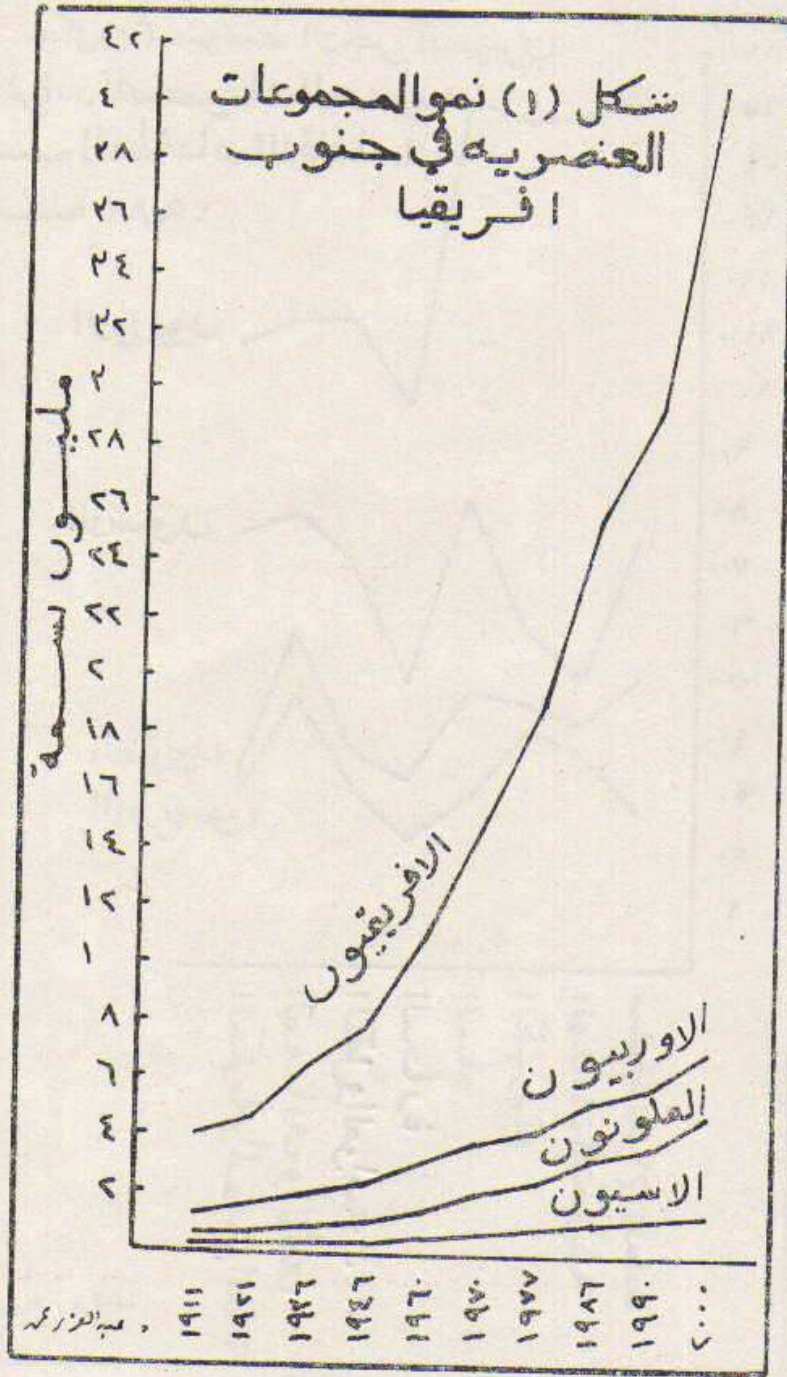 شكل (١) نمو المجموعات
العنصريه في جنوب
افريقيا
مليون نسمة
٤٢
٤٠
٣٨
٣٦
٣٤
٣٢
٣٠
٢٨
٢٦
٢٤
٢٢
٢٠
١٨
١٦
١٤
١٢
١٠
٨
٦
٤
٢
الافريقيون
الاوربيون
الملونون
الاسيون
١٩١١
١٩٢١
١٩٣٦
١٩٤٦
١٩٦٠
١٩٧٠
١٩٧٧
١٩٨٦
١٩٩٠
٢٠٠٠